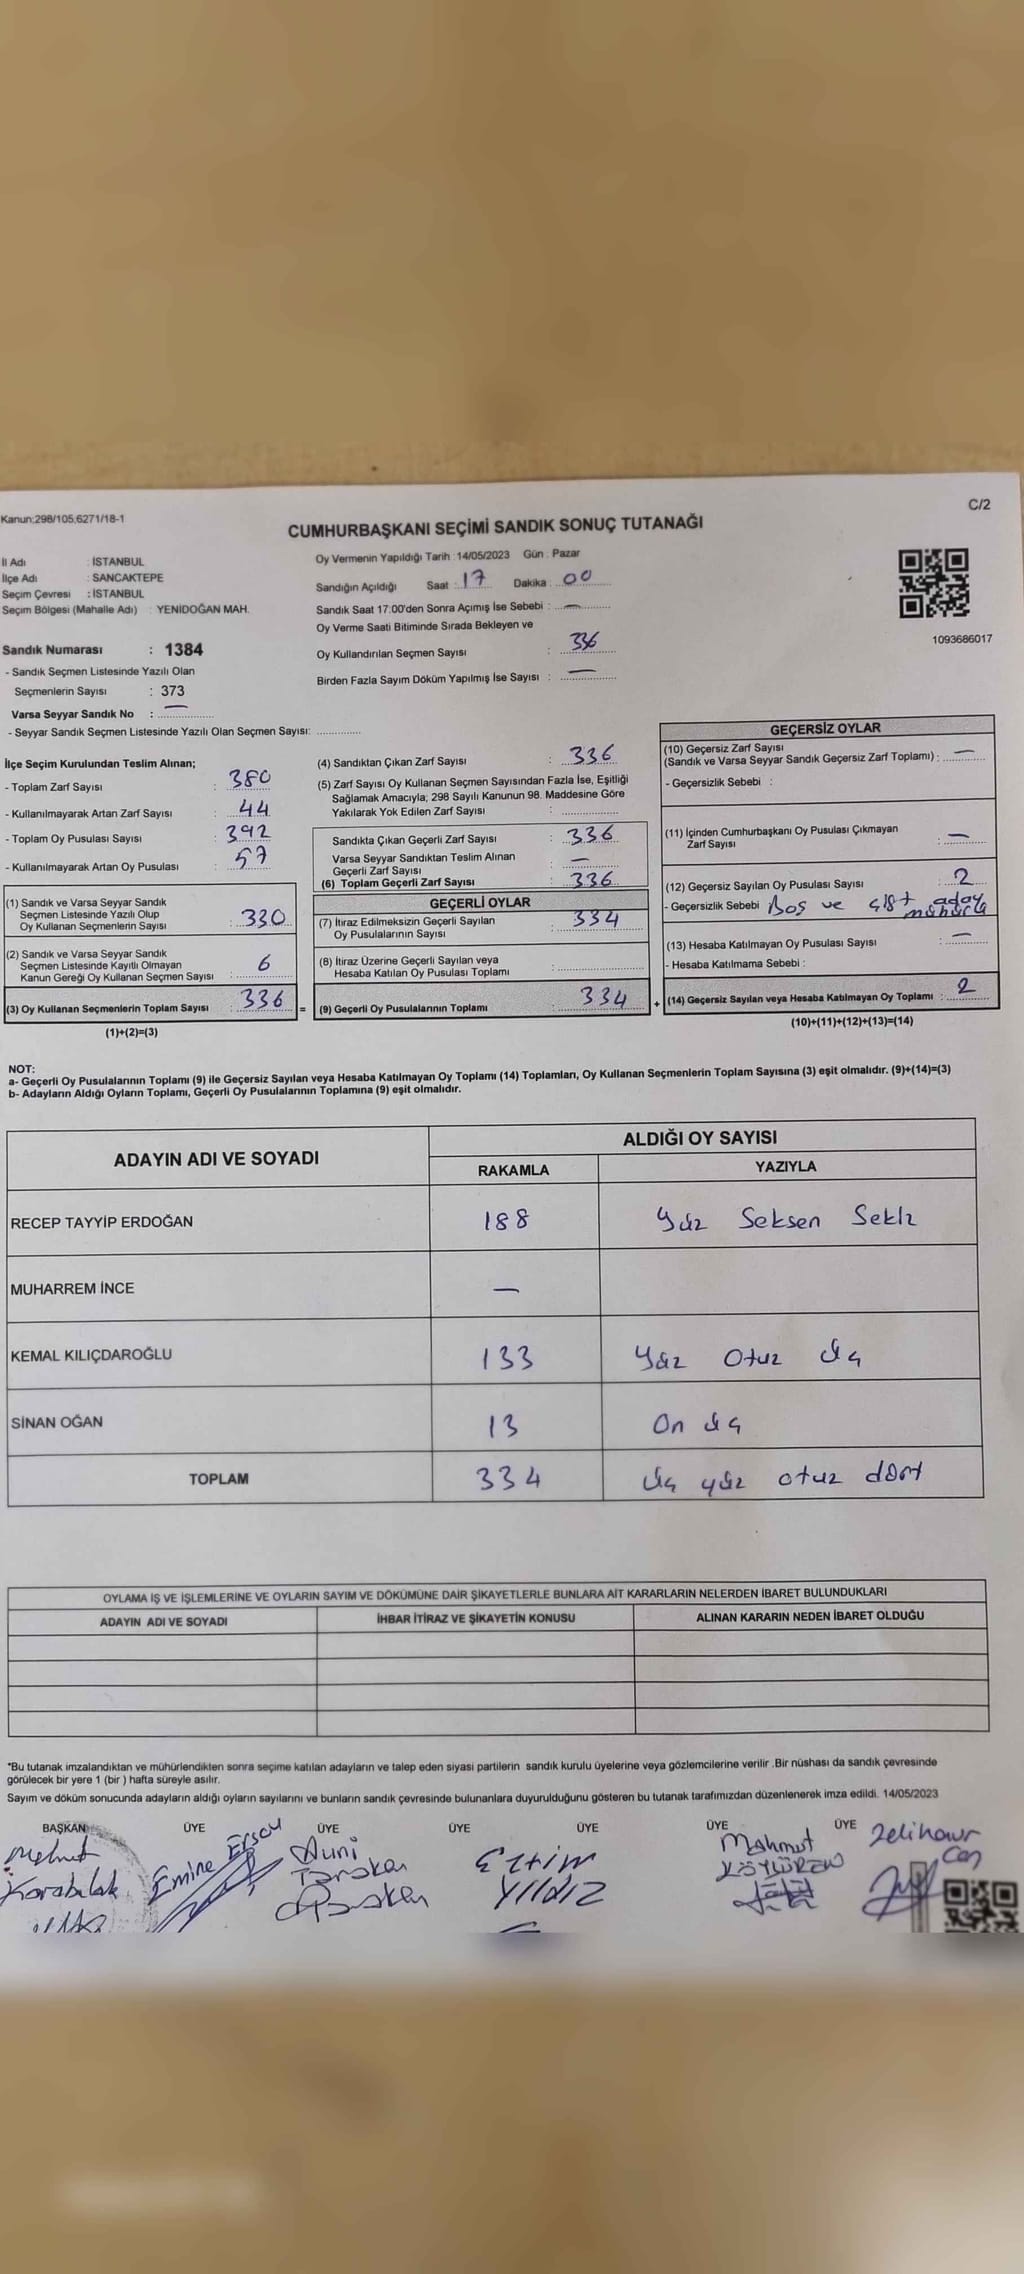 Kanun:298/105,6271/18-1
C/2
CUMHURBAŞKANI SEÇİMİ SANDIK SONUÇ TUTANAĞI
İl Adı : İSTANBUL
İlçe Adı : SANCAKTEPE
Seçim Çevresi : İSTANBUL
Seçim Bölgesi (Mahalle Adı) : YENİDOĞAN MAH.
Oy Vermenin Yapıldığı Tarih :14/05/2023 Gün : Pazar
Sandığın Açıldığı Saat : 17 Dakika : 00
Sandık Saat 17:00'den Sonra Açımış İse Sebebi : —
Oy Verme Saati Bitiminde Sırada Bekleyen ve
Oy Kullandırılan Seçmen Sayısı : 336
Birden Fazla Sayım Döküm Yapılmış İse Sayısı : —
1093686017
Sandık Numarası : 1384
- Sandık Seçmen Listesinde Yazılı Olan
Seçmenlerin Sayısı : 373
Varsa Seyyar Sandık No : —
- Seyyar Sandık Seçmen Listesinde Yazılı Olan Seçmen Sayısı:
İlçe Seçim Kurulundan Teslim Alınan;
- Toplam Zarf Sayısı : 380
- Kullanılmayarak Artan Zarf Sayısı : 44
- Toplam Oy Pusulası Sayısı : 392
- Kullanılmayarak Artan Oy Pusulası : 57
(1) Sandık ve Varsa Seyyar Sandık
Seçmen Listesinde Yazılı Olup
Oy Kullanan Seçmenlerin Sayısı : 330
(2) Sandık ve Varsa Seyyar Sandık
Seçmen Listesinde Kayıtlı Olmayan
Kanun Gereği Oy Kullanan Seçmen Sayısı : 6
(3) Oy Kullanan Seçmenlerin Toplam Sayısı : 336 =
(1)+(2)=(3)
(4) Sandıktan Çıkan Zarf Sayısı : 336
(5) Zarf Sayısı Oy Kullanan Seçmen Sayısından Fazla İse, Eşitliği
Sağlamak Amacıyla; 298 Sayılı Kanunun 98. Maddesine Göre
Yakılarak Yok Edilen Zarf Sayısı :
Sandıkta Çıkan Geçerli Zarf Sayısı : 336
Varsa Seyyar Sandıktan Teslim Alınan
Geçerli Zarf Sayısı : —
(6) Toplam Geçerli Zarf Sayısı : 336
GEÇERLİ OYLAR
(7) İtiraz Edilmeksizin Geçerli Sayılan
Oy Pusulalarının Sayısı : 334
(8) İtiraz Üzerine Geçerli Sayılan veya
Hesaba Katılan Oy Pusulası Toplamı :
(9) Geçerli Oy Pusulalarının Toplamı : 334 +
GEÇERSİZ OYLAR
(10) Geçersiz Zarf Sayısı
(Sandık ve Varsa Seyyar Sandık Geçersiz Zarf Toplamı) : —
- Geçersizlik Sebebi :
(11) İçinden Cumhurbaşkanı Oy Pusulası Çıkmayan
Zarf Sayısı : —
(12) Geçersiz Sayılan Oy Pusulası Sayısı : 2
- Geçersizlik Sebebi Boş ve çift aday
(13) Hesaba Katılmayan Oy Pusulası Sayısı : —
- Hesaba Katılmama Sebebi :
(14) Geçersiz Sayılan veya Hesaba Katılmayan Oy Toplamı : 2
(10)+(11)+(12)+(13)=(14)
NOT:
a- Geçerli Oy Pusulalarının Toplamı (9) ile Geçersiz Sayılan veya Hesaba Katılmayan Oy Toplamı (14) Toplamları, Oy Kullanan Seçmenlerin Toplam Sayısına (3) eşit olmalıdır. (9)+(14)=(3)
b- Adayların Aldığı Oyların Toplamı, Geçerli Oy Pusulalarının Toplamına (9) eşit olmalıdır.
ADAYIN ADI VE SOYADI
ALDIĞI OY SAYISI
RAKAMLA YAZIYLA
RECEP TAYYİP ERDOĞAN 188 Yüz Seksen Sekiz
MUHARREM İNCE —
KEMAL KILIÇDAROĞLU 133 Yüz Otuz Üç
SİNAN OĞAN 13 On üç
TOPLAM 334 Üç yüz otuz dört
OYLAMA İŞ VE İŞLEMLERİNE VE OYLARIN SAYIM VE DÖKÜMÜNE DAİR ŞİKAYETLERLE BUNLARA AİT KARARLARIN NELERDEN İBARET BULUNDUKLARI
ADAYIN ADI VE SOYADI İHBAR İTİRAZ VE ŞİKAYETİN KONUSU ALINAN KARARIN NEDEN İBARET OLDUĞU
*Bu tutanak imzalandıktan ve mühürlendikten sonra seçime katılan adayların ve talep eden siyasi partilerin sandık kurulu üyelerine veya gözlemcilerine verilir .Bir nüshası da sandık çevresinde
görülecek bir yere 1 (bir ) hafta süreyle asılır.
Sayım ve döküm sonucunda adayların aldığı oyların sayılarını ve bunların sandık çevresinde bulunanlara duyurulduğunu gösteren bu tutanak tarafımızdan düzenlenerek imza edildi. 14/05/2023
BAŞKAN ÜYE ÜYE ÜYE ÜYE ÜYE ÜYE
Mehmet Emine Ersoy Avni Mahmut
Karabulak Yıldız Can